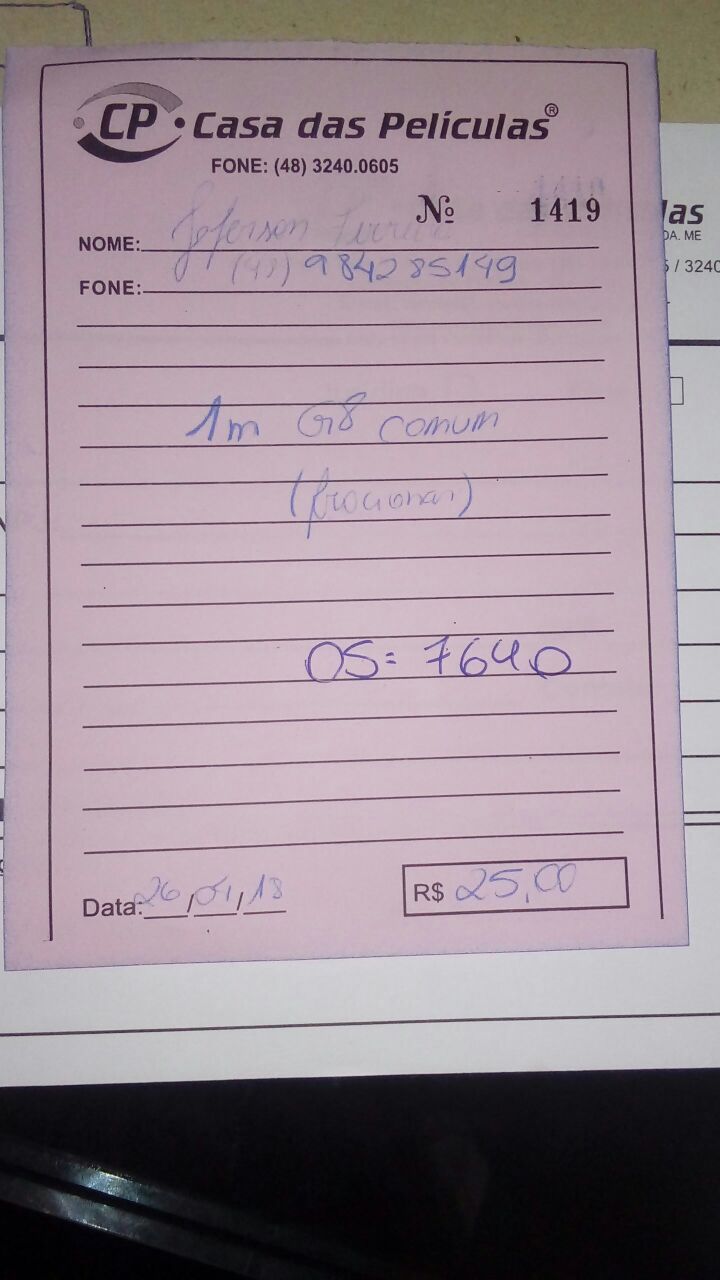 CP Casa das Películas®
FONE: (48) 3240.0605
Nº 1419
NOME: Jeferson
FONE: (48) 984285149
1m G8 comum
(frocionar)
OS= 7640
Data: 26/01/18
R$ 25,00
las
DA. ME
5 / 3240